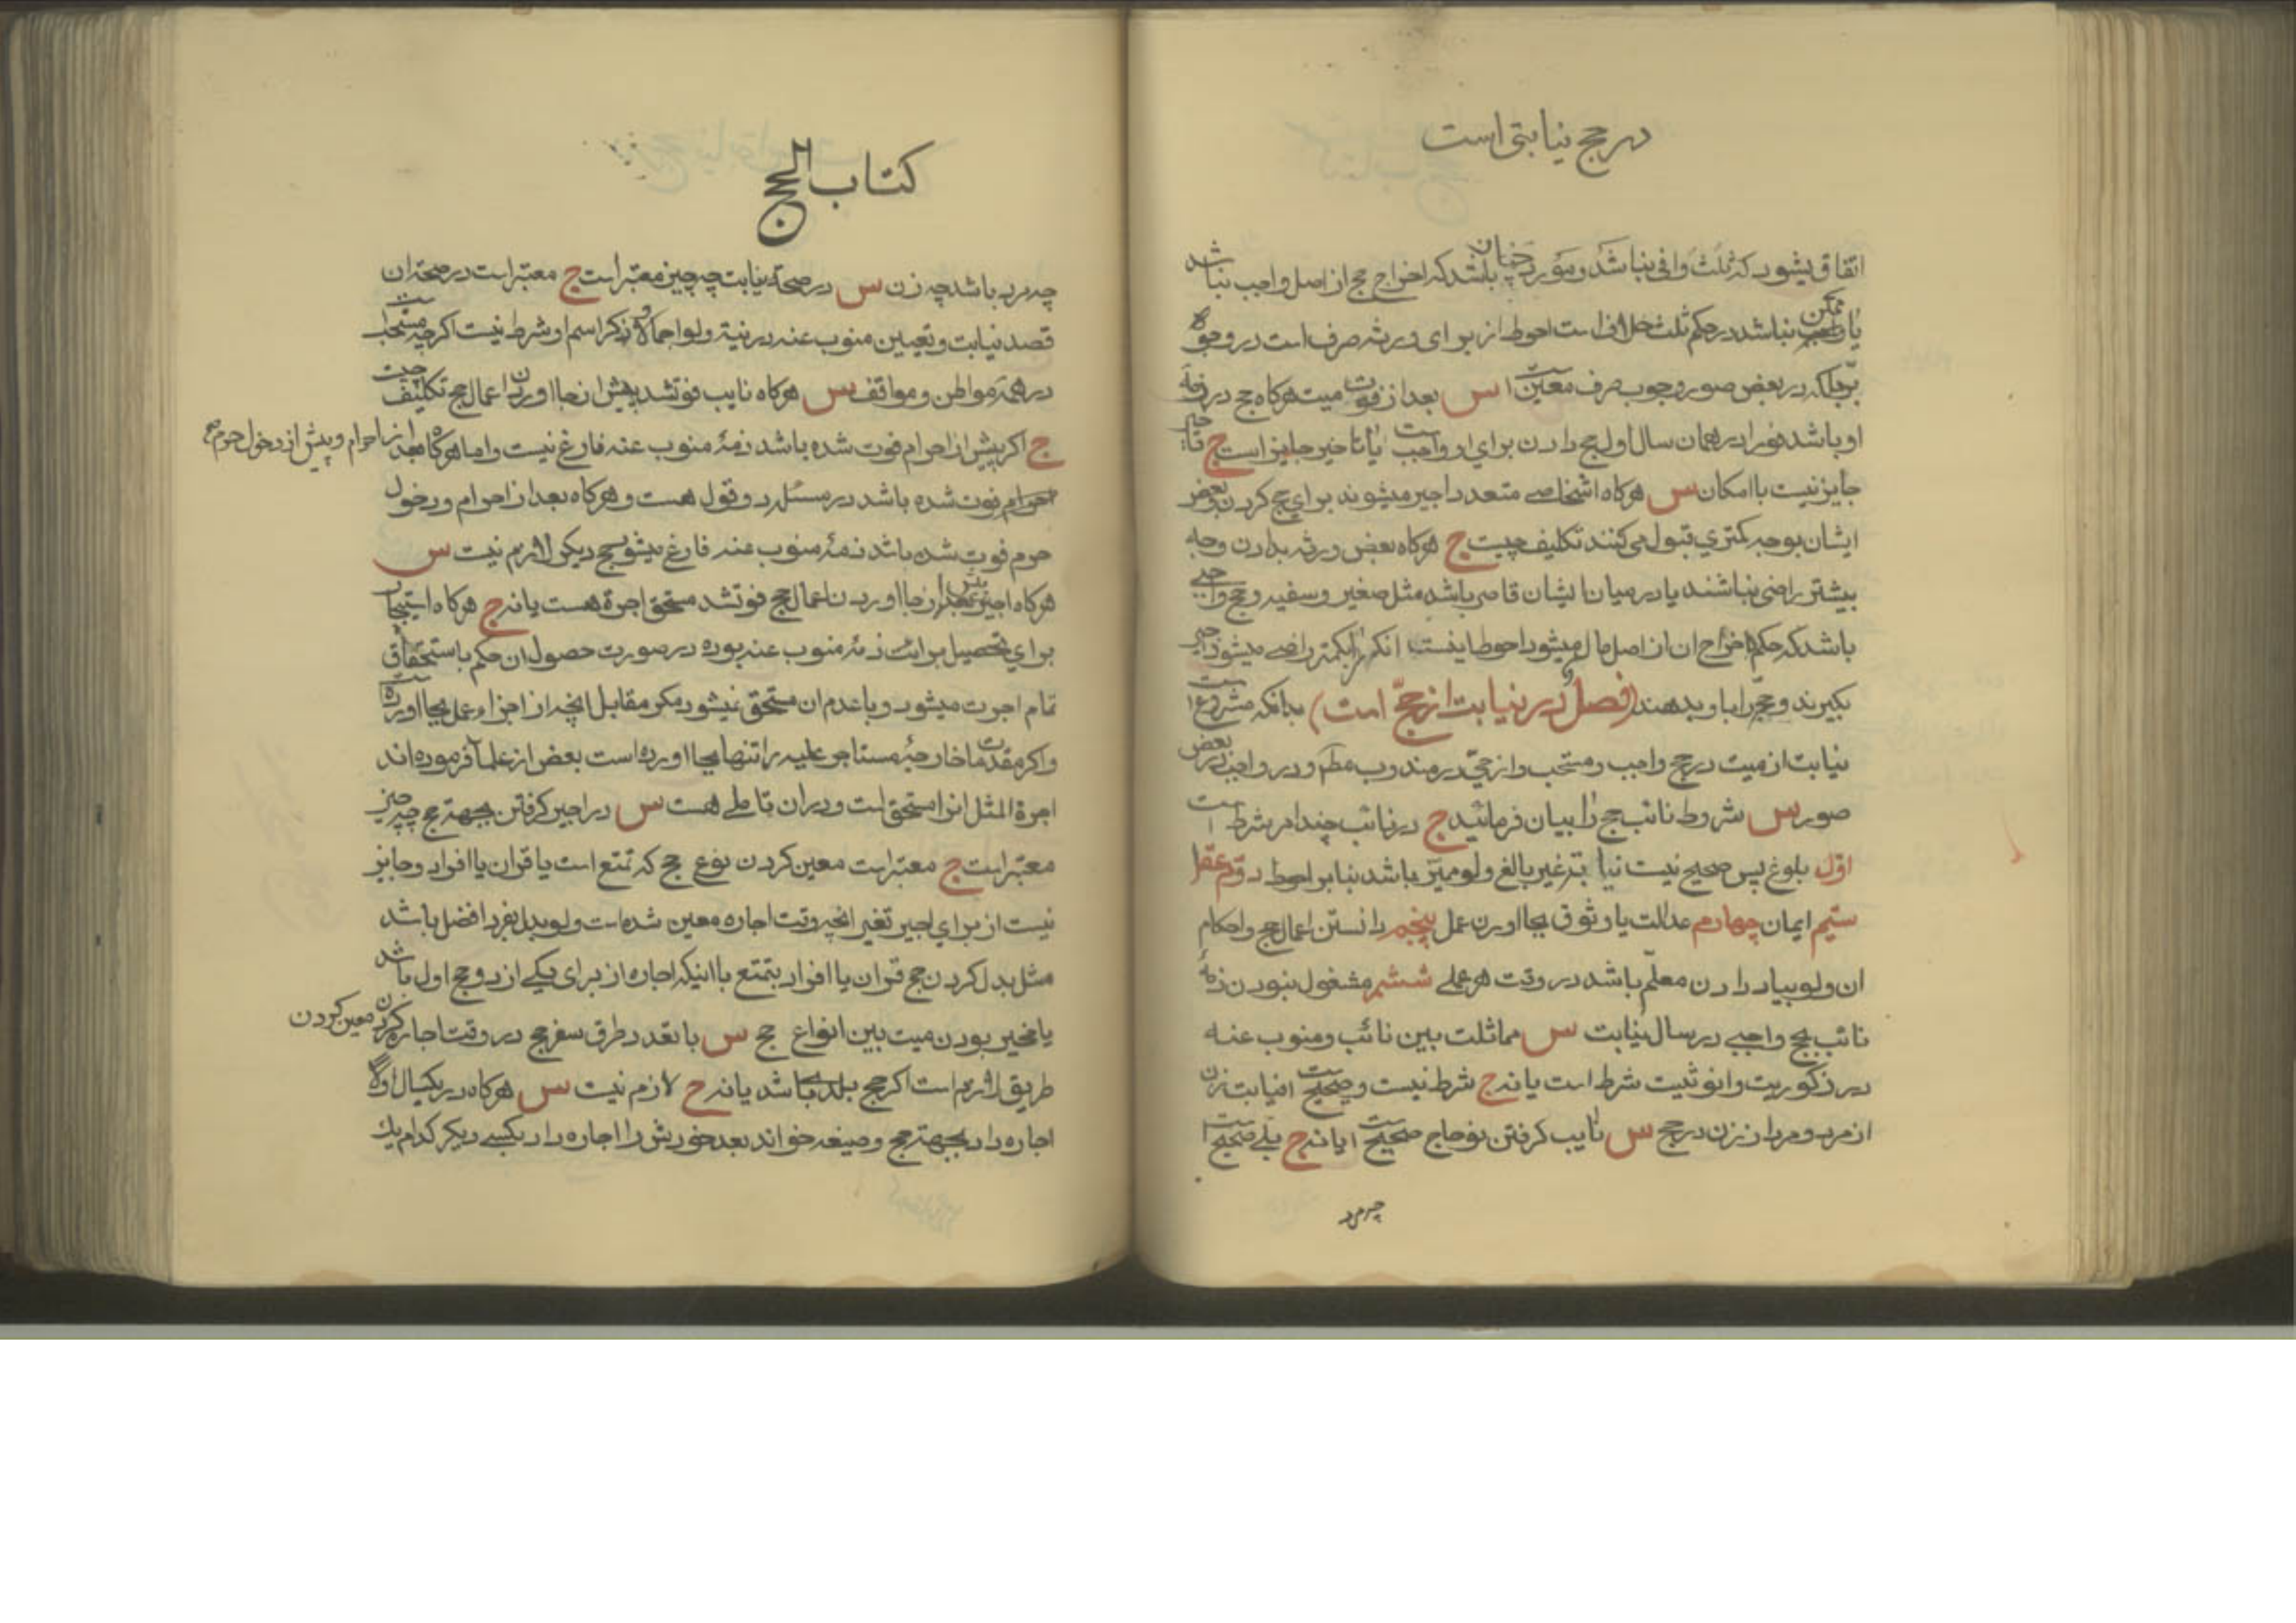 در حج نیابتی است
اتفاق بیشود که ثلث وافی نباشد و مورد چنان باشد که اخراج حج از اصل واجب نباشد
یا ممکن نباشد در حکم ثلث خلاف است احوط از برای ورثه صرف است در وجوه
برّ بلکه در بعض صور وجوب صرف معین است س بعد از فوت میت هرکاه حج در ذمهٔ
او باشد فورا در همان سال اول حج دادن برای او واجب است یا تاخیر جایز است ج تاخیر
جایز نیست با امکان س هرکاه اشخاصی متعدد اجیر میشوند برای حج کردن و بعض
ایشان بوجه کمتری قبول می کنند تکلیف چیست ج هرکاه بعض ورثه بدادن وجه
بیشتر راضی نباشند یا در میان ایشان قاصر باشد مثل صغیر و سفیه و حج واجبی
باشد که حکم اخراج ان از اصل مال میشود احوط اینست انکه بکمتر راضی میشود اجیر
بکیرند و حج را باو بدهند (فصل در نیابت از حجّ است) بدانکه مشروع است
نیابت از میت در حج واجب و مستحب و از حیّ در مندوب مطم و در واجب در بعض
صور س شروط نائب حج را بیان فرمائید ج در نائب چند امر شرط است
اوّل بلوغ پس صحیح نیست نیابت غیر بالغ ولو ممیّز باشد بنا بر احوط دوّم عقل
سیّم ایمان چهارم عدالت یا وثوق بجا اوردن عمل پنجم دانستن اعمال حج و احکام
ان ولو بیاد دادن معلّم باشد در وقت هر عملی ششم مشغول نبودن ذمهٔ
نائب بحج واجبی در سال نیابت س مماثلت بین نائب و منوب عنه
در ذکوریت و انوثیت شرط است یا نه ج شرط نیست و صحیح است نیابت زن
از مرد و مرد از زن در حج س نایب کرفتن نوحاج صحیح است یا نه ج بلی صحیح است
چه مرد
کتاب الحج
چه مرد باشد چه زن س در صحة نیابت چه چیز معتبر است ج معتبر است در صحة ان
قصد نیابت و تعیین منوب عنه در نیة ولو اجمالا و ذکر اسم او شرط نیست اکرچه مستحب است
در همهٔ مواطن و مواقف س هرکاه نایب فوت شد پیش از بجا اوردن اعمال حج تکلیف چیست
ج اکر پیش از احرام فوت شده باشد ذمهٔ منوب عنه فارغ نیست و اما هرکاه بعد از احرام و پیش از دخول حرم
فوت شده باشد در مسئله دو قول هست و هرکاه بعد از احرام و دخول
حرم فوت شده باشد ذمهٔ منوب عنه فارغ میشود حج دیکر لازم نیست س
هرکاه اجیر پیش از بجا اوردن اعمال حج فوت شد مستحق اجرة هست یا نه ج هرکاه استیجار
برای تحصیل برائت ذمهٔ منوب عنه بوده در صورت حصول ان حکم باستحقاق
تمام اجرت میشود و با عدم ان مستحق نمیشود مکر مقابل انچه از اجزاء عمل بجا اورده است
و اکر مقدمات خارجهٔ مستاجر علیه را تنها بجا اورده است بعض از علما فرموده اند
اجرة المثل انرا مستحق است و در ان تاملی هست س در اجیر کرفتن بجهة حج چه چیز
معتبر است ج معتبر است معین کردن نوع حج که تمتع است یا قران یا افراد و جایز
نیست از برای اجیر تغیر انچه وقت اجاره معین شده است ولو بدل بفرد افضل باشد
مثل بدل کردن حج قران یا افراد بتمتع با اینکه اجاره از برای یکی از دو حج اول باشد
یا مخیر بودن میت بین انواع حج س با تعدد طرق سفر حج در وقت اجاره کردن معین کردن
طریق لازم است اکر حج بلدی باشد یا نه ج لازم نیست س هرکاه در یکسال اولا
اجاره داد بجهة حج و صیغه خواند بعد خودش را اجاره داد بکسی دیکر کدام یك